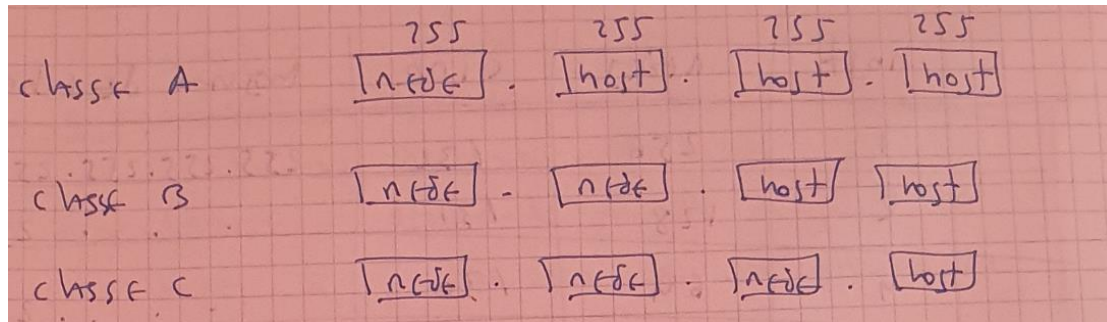 255 255 255 255
classe A rede . host . host . host
classe B rede . rede . host host
classe C rede . rede . rede . host